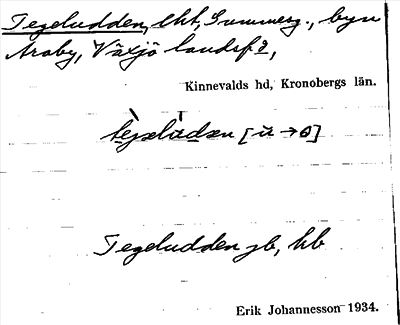 Tegeludden, lht, Gummesg., byn
Araby, Växjö landsf.,
Kinnevalds hd, Kronobergs län.
Tegeludden jb, hb
Erik Johannesson 1934.